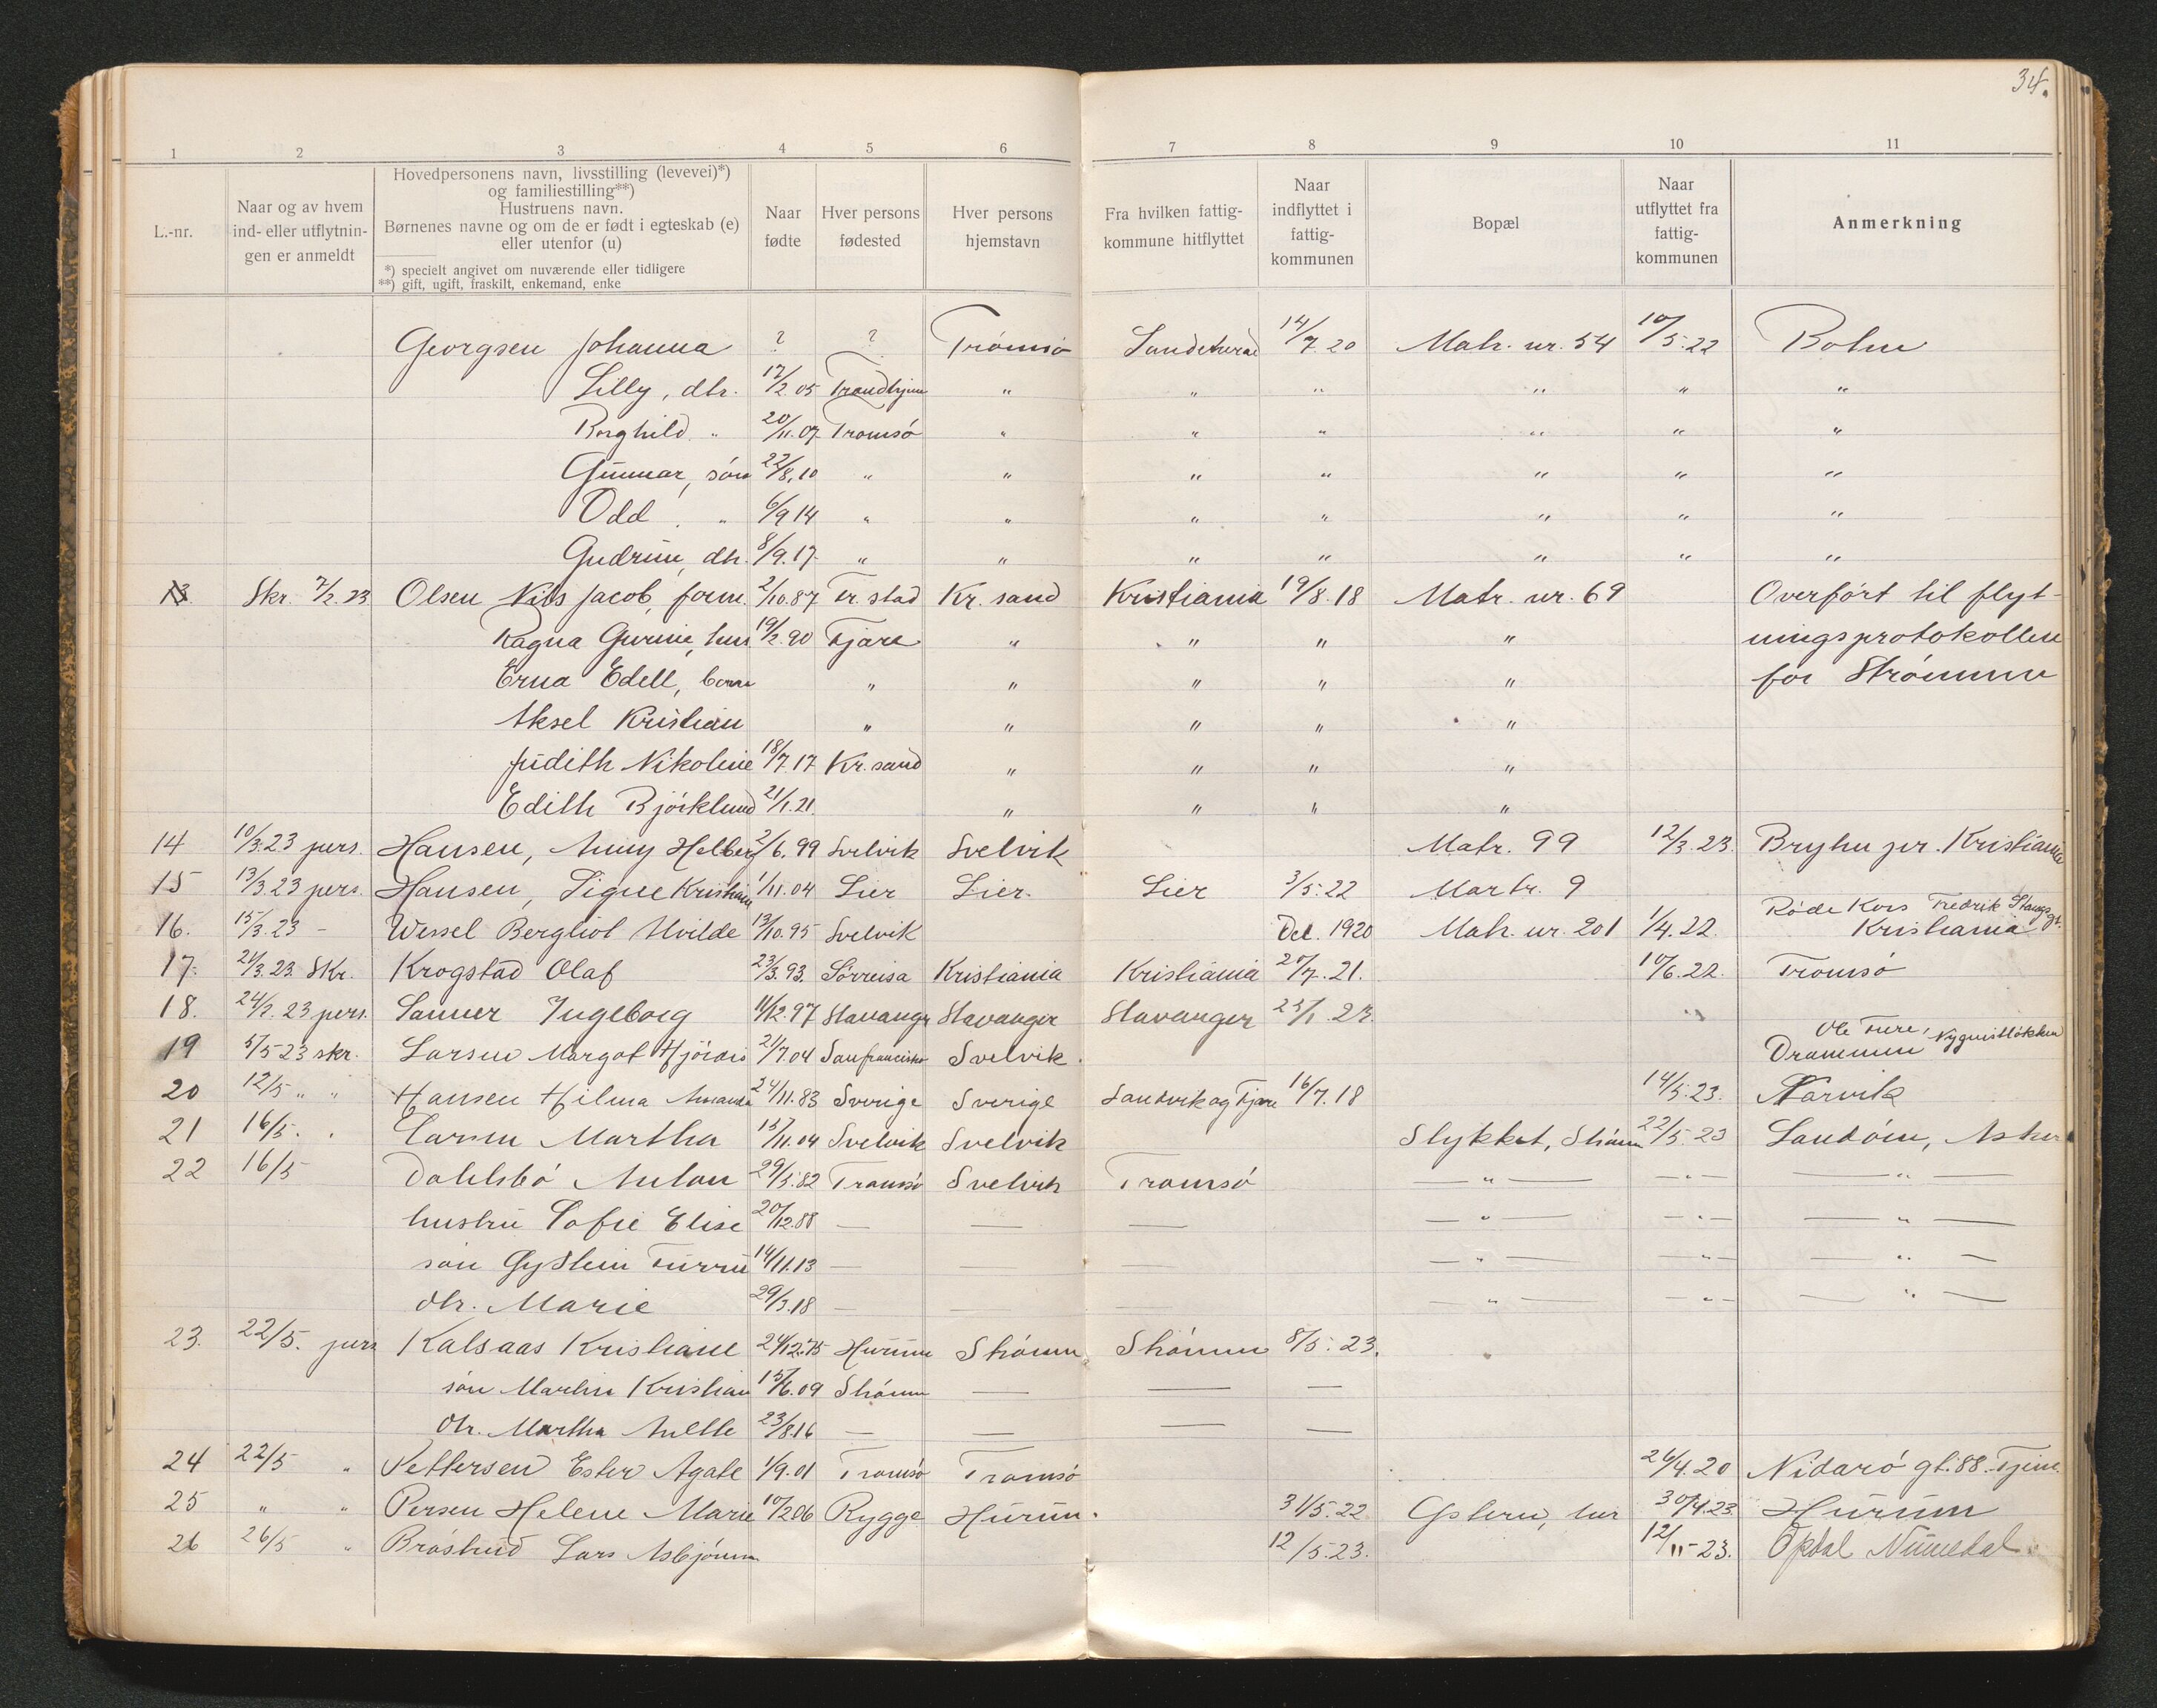 34.
1 2 3 4 5 6 7 8 9 10 11
L.-nr.
Naar og av hvem
ind- eller utflytnin-
gen er anmeldt
Hovedpersonens navn, livsstilling (levevei)*)
og familiestilling**)
Hustruens navn.
Børnenes navne og om de er født i egteskab (e)
eller utenfor (u)
*) specielt angivet om nuværende eller tidligere
**) gift, ugift, fraskilt, enkemand, enke
Naar
fødte
Hver persons
fødested
Hver persons
hjemstavn
Fra hvilken fattig-
kommune hitflyttet
Naar
indflyttet i
fattig-
kommunen
Bopæl
Naar
utflyttet fra
fattig-
kommunen
Anmerkning
Georgsen Johanna ? ? Tromsö Sandeherad 14/7 20 Matr. nr. 54 10/5.22 Botne
Lilly, dtr. 17/2.05 Trondhjem " " " " " "
Borghild " 20/11.07 Tromsö " " " " " "
Gunnar, sön 22/8.10 " " " " " " "
Odd " 6/9 14 " " " " " " "
Gudrun, dtr. 8/9.17 " " " " " " "
13. Skr. 7/2.23 Olsen Nils Jacob, form. 2/10.87 Fr. stad Kr. sand Kristiania 19/8.18 Matr. nr. 69 Overfört til flyt-
Ragna Gurine, hus. 19/2.90 Tjøre " " " " ningsprotokollen
Erna Edell, barn " " " " " for Strömmen
Aksel Kristian " " " " "
Judith Nikoline 18/7.17 Kr. sand " " " "
Edith Björklund 21/1.21. " " " "
14 10/3.23 pers. Hansen, Anny Helberg 2/6.99 Svelvik Svelvik Matr. 99 12/3.23. Bryhn pr. Kristiania
15 13/3.23 pers. Hansen, Signe Kristiane 1/11.04 Lier Lier. Lier 3/5.22 Martr. 9
16. 15/3.23 - Wessel Bergliot Hvilde 13/10.95 Svelvik Del. 1920 Matr. nr. 201 1/4.22. Röde Kors Fredrik Stangs gt.
Kristiania
17. 21/3.23. Skr. Krogstad Olaf 23/3.93. Sörreisa Kristiania Kristiania 20/7.21. 10/6.22. Tromsö
18. 24/3.23 pers. Sanner Ingeborg 11/12.97 Stavanger Stavanger Stavanger 23/1.23. "
19 5/5 23 skr. Larsen Margot Hjördis 21/7.04 Sanfrancisko Svelvik. Ole Ture, Nyquistlökken
Drammen
20 12/5 " " Hansen Hilma Amanda 24/11.83 Sverige Sverige Sandvik og Tjøre 16/7.18 14/5.23. Narvik
21 16/5. " Larsen Martha 15/11.04 Svelvik Svelvik Stykket, Ström 22/5.23 Sandöen, Asker
22 16/5 Dahlsbö Anton 29/3.82 Tromsö Svelvik Tromsö — " — — " — — " —
hustru Sofie Elise 20/12.88 — — — — " — — " — — " —
sön Gystein Furru 14/11.13 — — " — — " — — " —
dtr. Marie 29/3.18 — — — " — — " — — " —
23. 22/5. pers Kalsaas Kristiane 24/12.75 Hurum Ström. Strömm 8/5.23.
sön Martin Kristian 15/6.09 Strömm — — —
dtr. Martha Anette 23/8.16 — — — —
24 22/5 " Pettersen Ester Agate 1/9.01 Tromsö Tromsö 26/4.20 Nidarö gt. 88. Tjem.
25 " " Persen Helene Marie 10/2 06 Rygge Hurum. 31/5.22 30/4.23. Hurum
26 26/5 " Bråstrud Lars Asbjörnsen 12/5.23. 12/11-23. Opdal Numedal